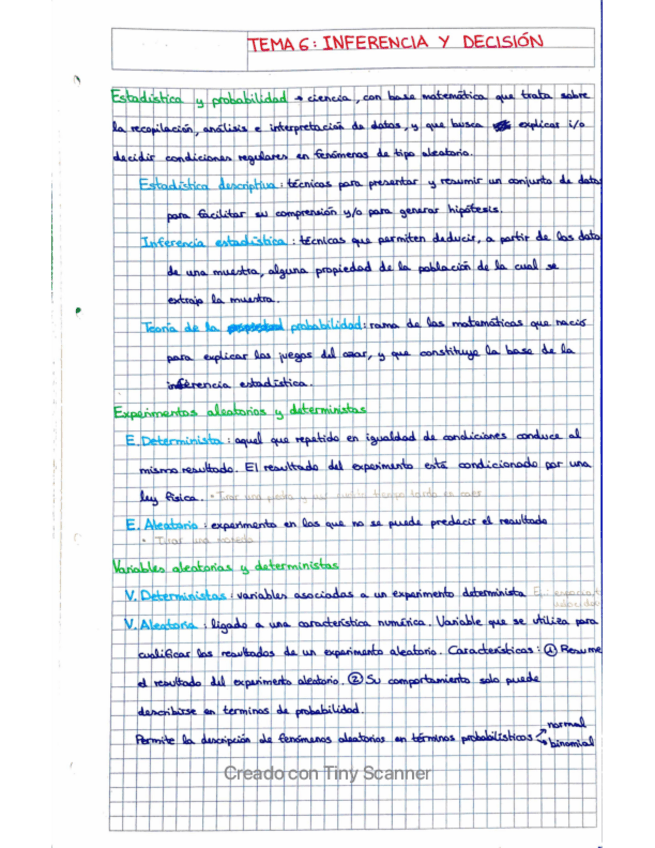 TEMA 6: INFERENCIA Y DECISIÓN
Estadística y probabilidad → ciencia, con base matemática que trata sobre
la recopilación, análisis e interpretación de datos, y que busca explicar i/o
decidir condiciones regulares en fenómenos de tipo aleatorio.
Estadística descriptiva: técnicas para presentar y resumir un conjunto de datos
para facilitar su comprensión y/o para generar hipótesis.
Inferencia estadística: técnicas que permiten deducir, a partir de los datos
de una muestra, alguna propiedad de la población de la cual se
extrajo la muestra.
Teoría de la probabilidad: rama de las matemáticas que nació
para explicar los juegos del azar, y que constituye la base de la
inferencia estadística.
Experimentos aleatorios y deterministas
E. Determinista: aquel que repetido en igualdad de condiciones conduce al
mismo resultado. El resultado del experimento está condicionado por una
ley física. • Tirar una piedra y ver cuánto tiempo tarda en caer
E. Aleatorio: experimento en los que no se puede predecir el resultado
• Tirar una moneda
Variables aleatorias y deterministas
V. Deterministas: variables asociadas a un experimento determinista Ej: espacio,
velocidad
V. Aleatoria: ligado a una característica numérica. Variable que se utiliza para
cualificar los resultados de un experimento aleatorio. Características: ① Resume
el resultado del experimento aleatorio. ② Su comportamiento solo puede
describirse en terminos de probabilidad.
Permite la descripción de fenómenos aleatorios en términos probabilísticos → normal
→ binomial
Creado con Tiny Scanner